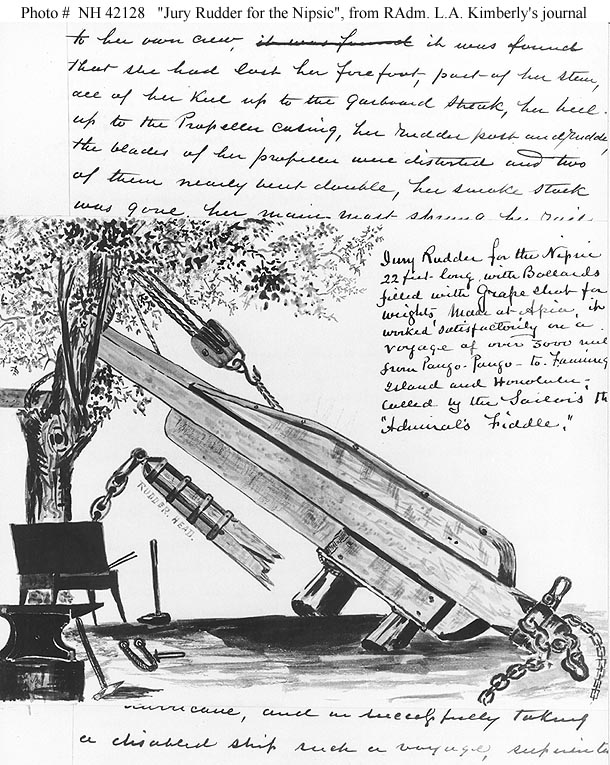 Photo # NH 42128 "Jury Rudder for the Nipsic", from RAdm. L.A. Kimberly's journal
to her own crew, it was found it was found
that she had lost her forefoot, part of her stem,
all of her keel up to the Garboard streak, her heel
up to the Propeller casing, her rudder post and rudder,
the blades of her propeller were distorted and two
of them nearly bent double, her smoke stack
was gone, her main mast sprung her rail
Jury Rudder for the Nipsic
22 feet long, with Bollards
filled with Grape Shot for
weights, Made at Apia, it
worked satisfactorily on a
voyage of over 3000 mil
from Pango-Pango to Fanning
Island and Honolulu,
Called by the Sailors the
"Admiral's Fiddle."
RUDDER. HEAD.
hurricane, and in successfully taking
a disabled ship such a voyage,